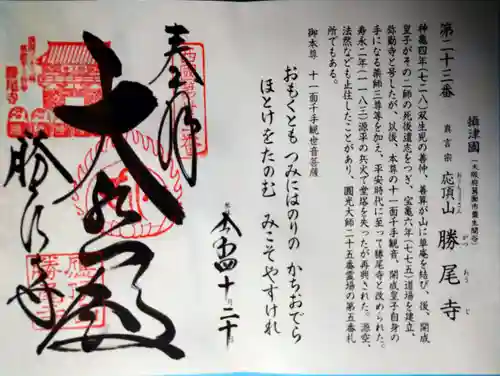 第二十三番
攝津國(大阪府箕面市粟生間谷)
真言宗 応頂山 勝尾寺
おうちょうざん かつおうじ
神亀四年(七二八)双生児の善仲、善算が山に草庵を結び、後、開成
皇子がその二師の死後遺志をつぎ、宝亀六年(七七五)道場を建立、
弥勒寺と号したが、以後、本尊の十一面千手観音、開成皇子自身の
手になる薬師三尊等を加え、平安時代に至って勝尾寺と改められた。
寿永二年(一一八三)源平の兵火で堂塔を失ったが再興された。源空、
法然なども止住したことがあり、圓光大師二十五番霊場の第五番札
所でもある。
御本尊 十一面千手観世音菩薩
おもくとも つみにはのりの かちおでら
ほとけをたのむ みこそやすけれ
十月二十日
奉拝
大悲殿
勝尾寺